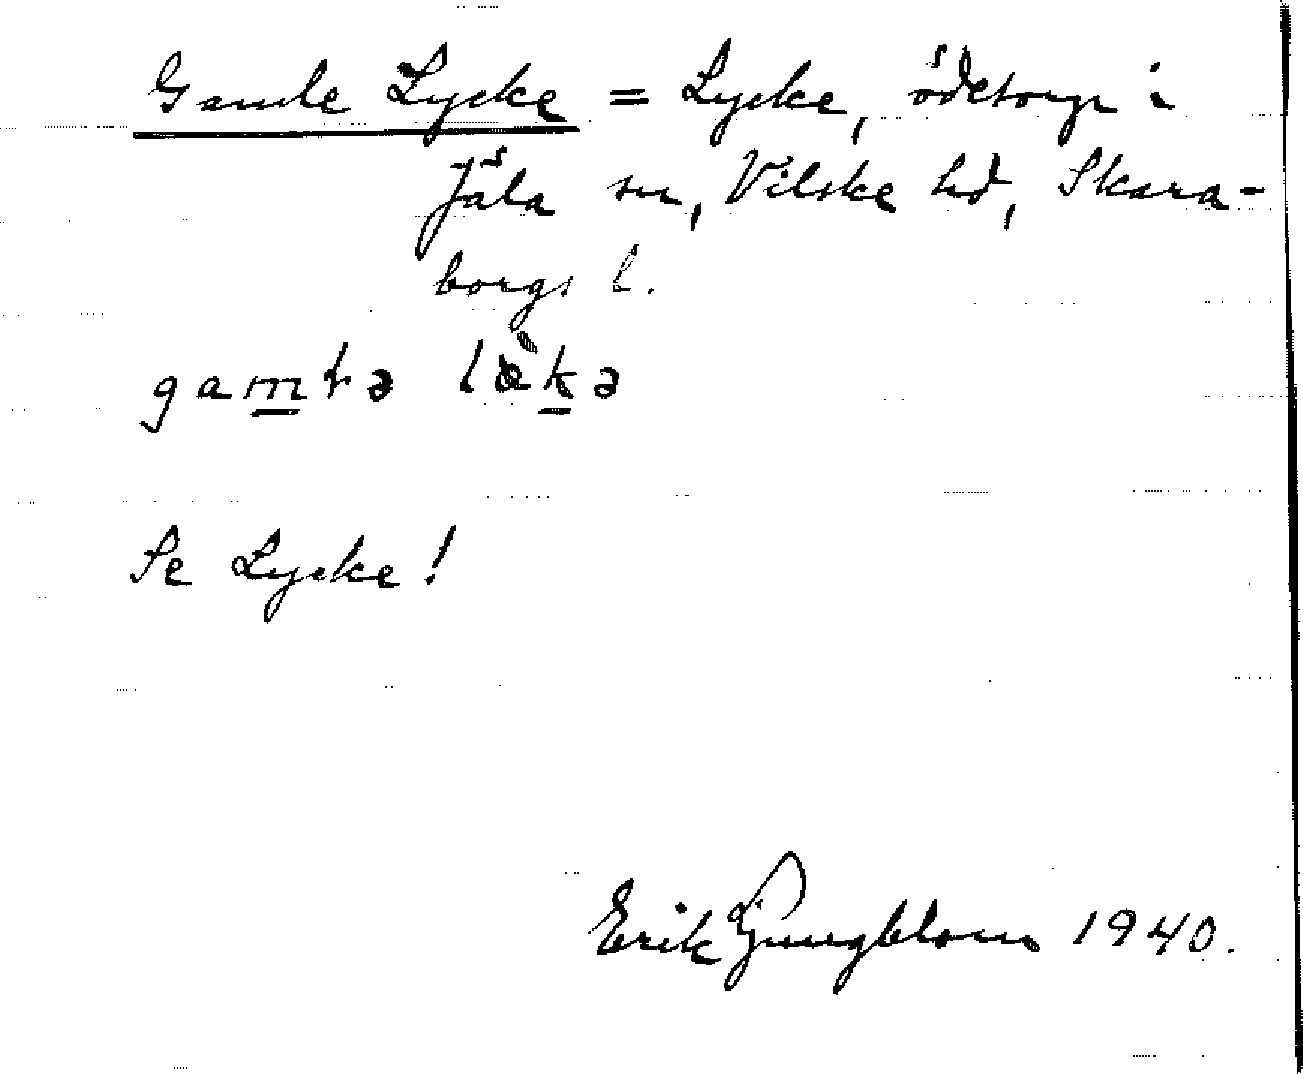 Gamle Lycke = Lycke, ödetorp i
Jäla sn, Vilske hd, Skara-
borgs l.
Se Lycke!
Erik Ljungblom 1940.